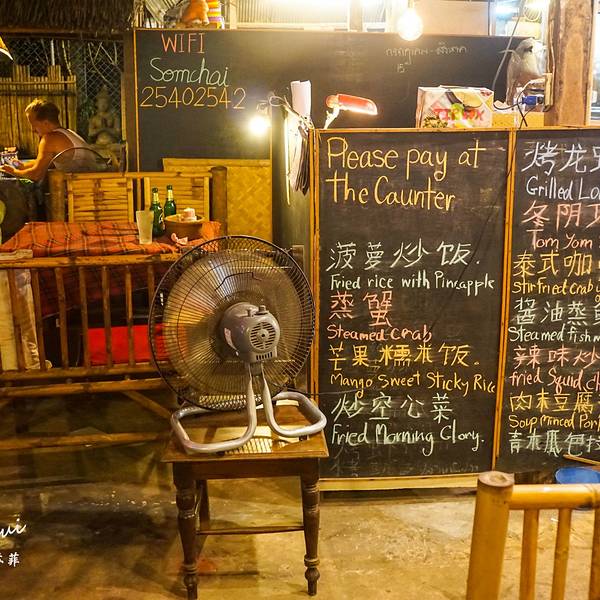 WIFI
Somchai
25402542
Please pay at
the Caunter
菠萝炒饭.
Fried rice with Pineapple
蒸蟹
Steamed crab
芒果糯米饭.
Mango Sweet Sticky Rice
炒空心菜
Fried Morning Glory.
烤龙
Grilled Lo
冬阴
Tom Yom
泰式咖
Stir Fried Crab
酱油蒸鱼
Steamed fish
辣味炒
fried Squid
肉末豆腐
Soup Minced Pork
青木瓜色拉